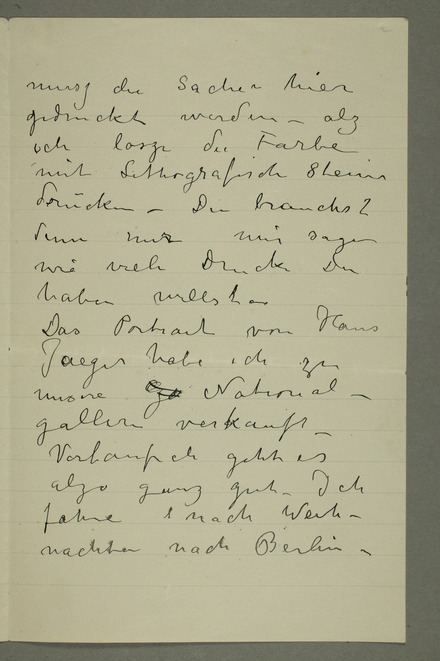 musz die Sachen hier
gedruckt werden – alz
ich lasze die Farbe
mit Lithografisch Steine
drücken – Du brauchst
denn nur mir sagen
wie viele Drucke Du
haben willst
Das Portrait von Hans
Jaeger habe ich zu
unsere National-
gallerie verkauft –
Vorläufich geht es
alzo ganz gut – Ich
fahre nach Weih-
nachten nach Berlin –